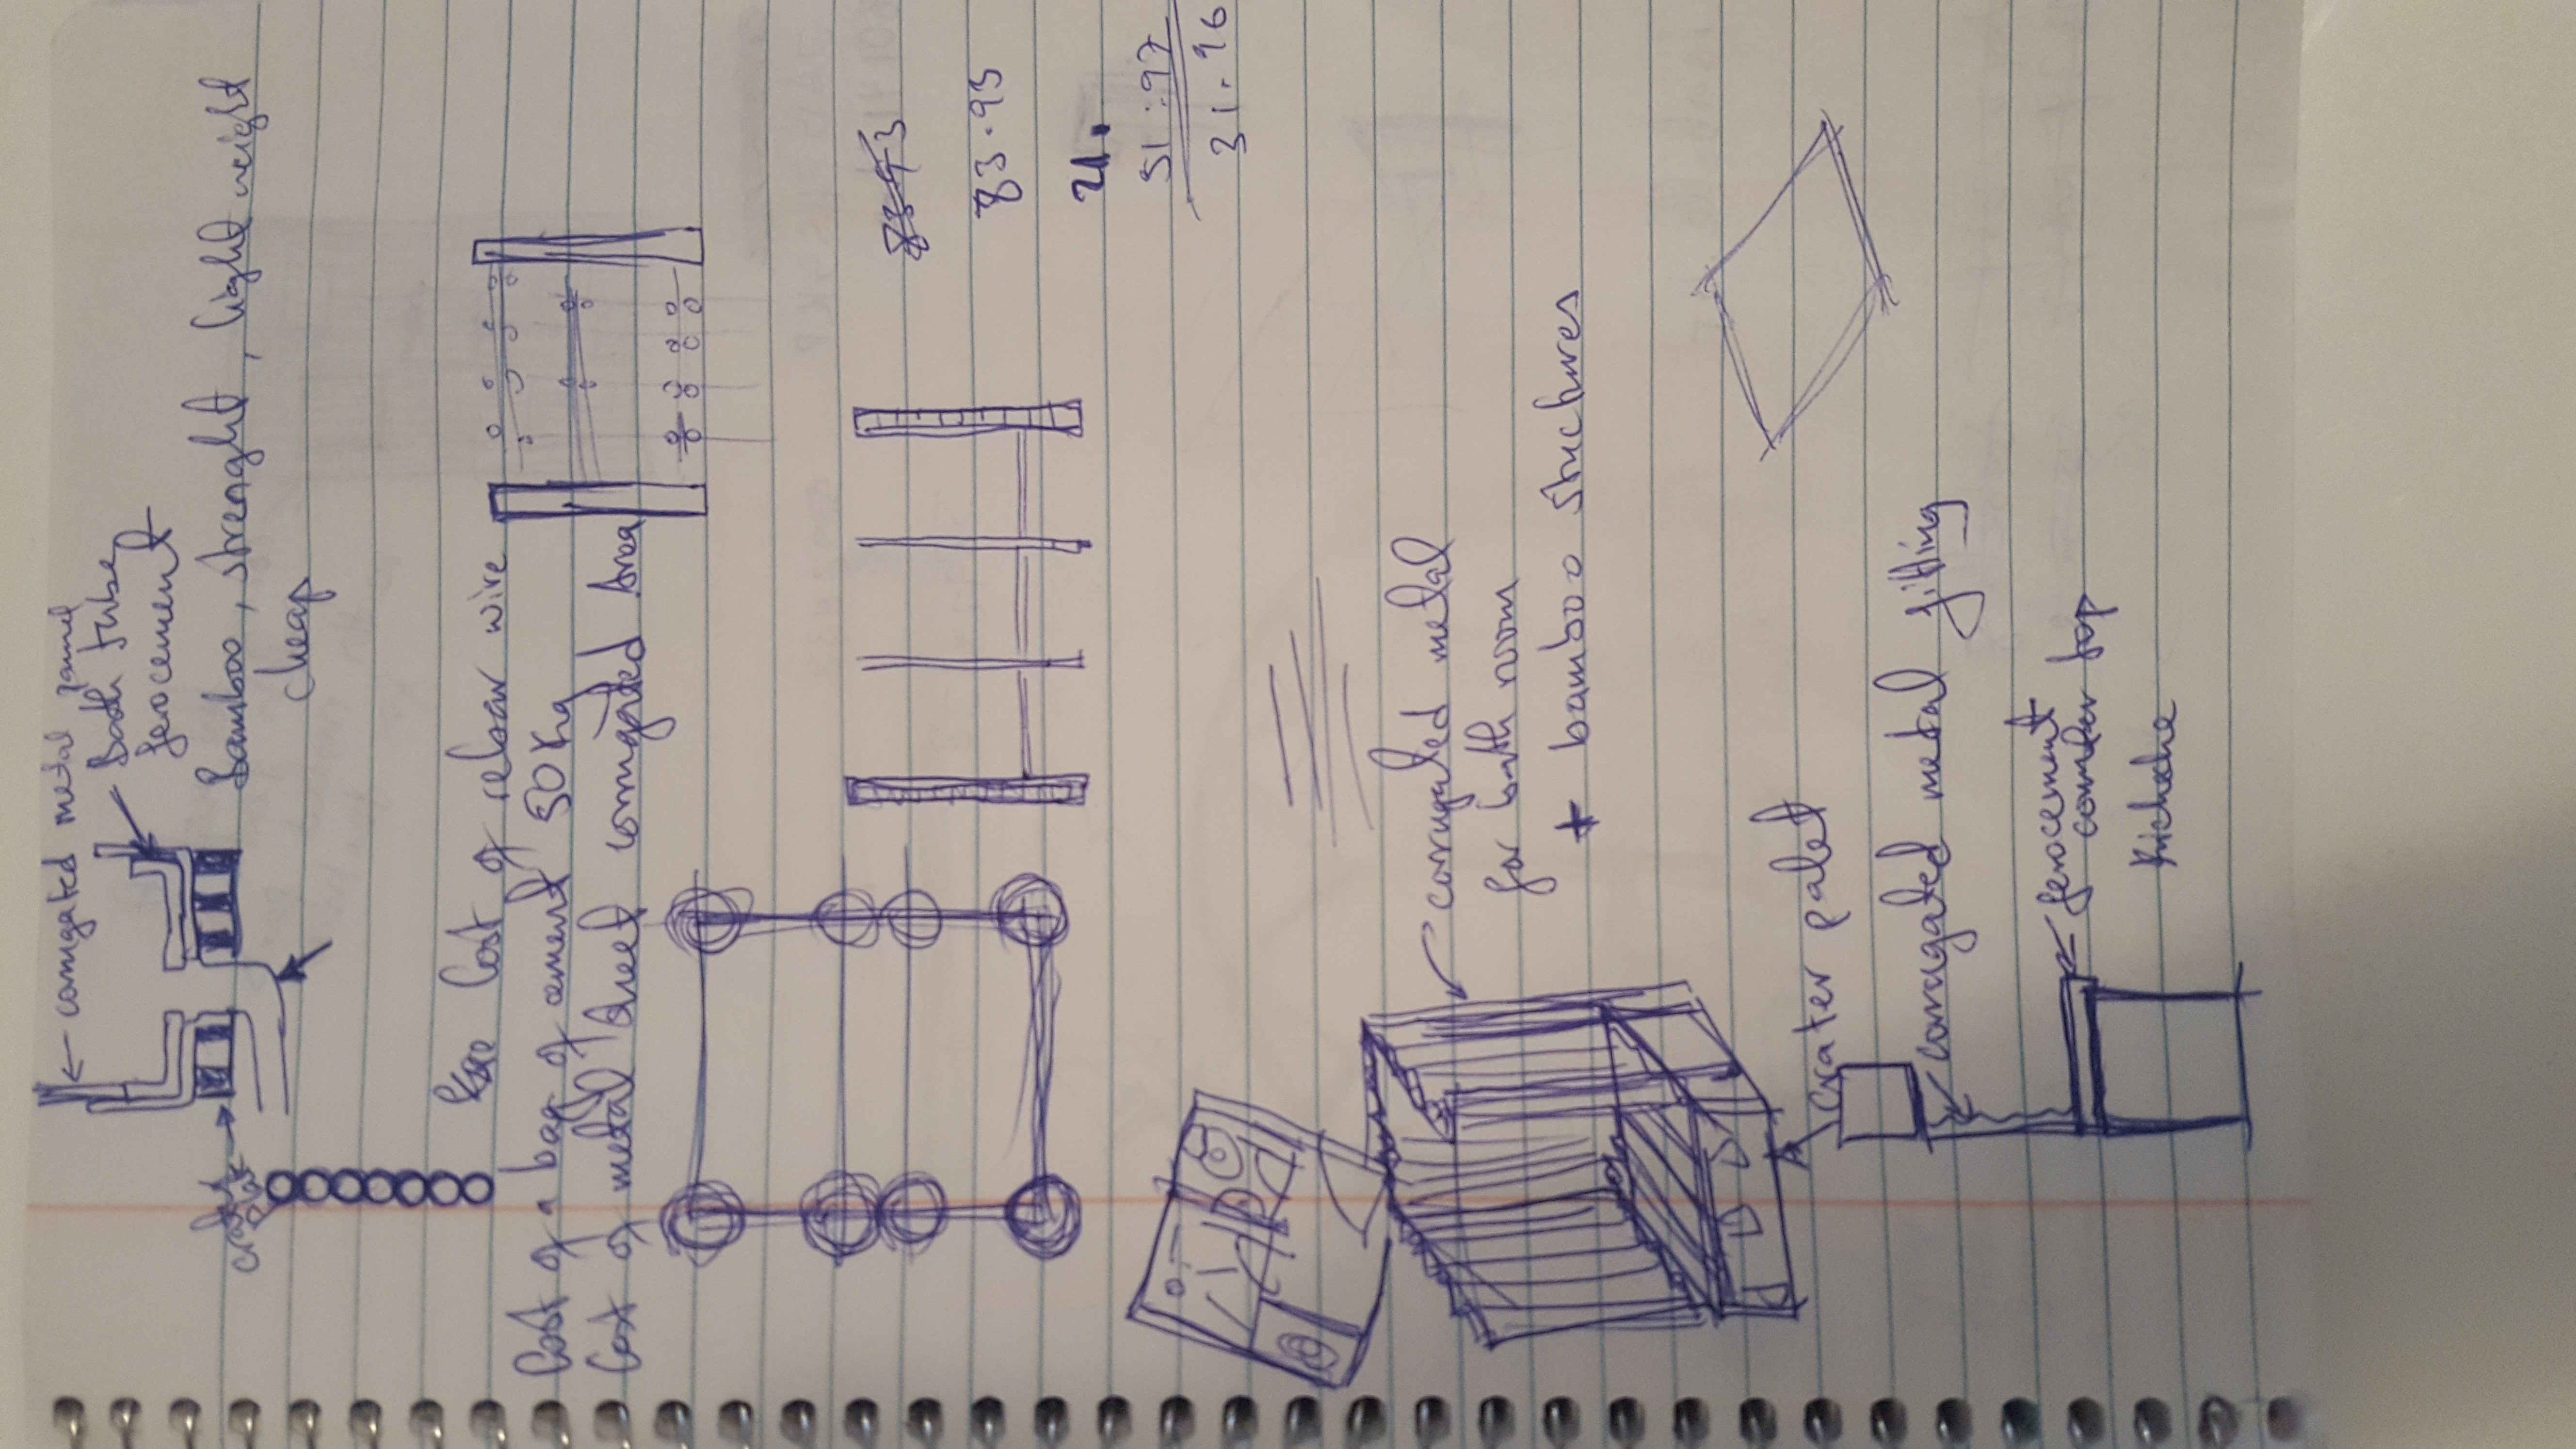 corrugated metal panel
Bath tube
ferocement
Bamboo, strenght, light weight
cheap
Cost of rebar wire
Cost of a bag of cement 50 Kg
Cost of metal sheet corrugated Area
83.93
21.
51.97
31.96
corrugated metal
for bath room
+ bamboo structures
crater palet
corrugated metal fitting
ferocement
counter top